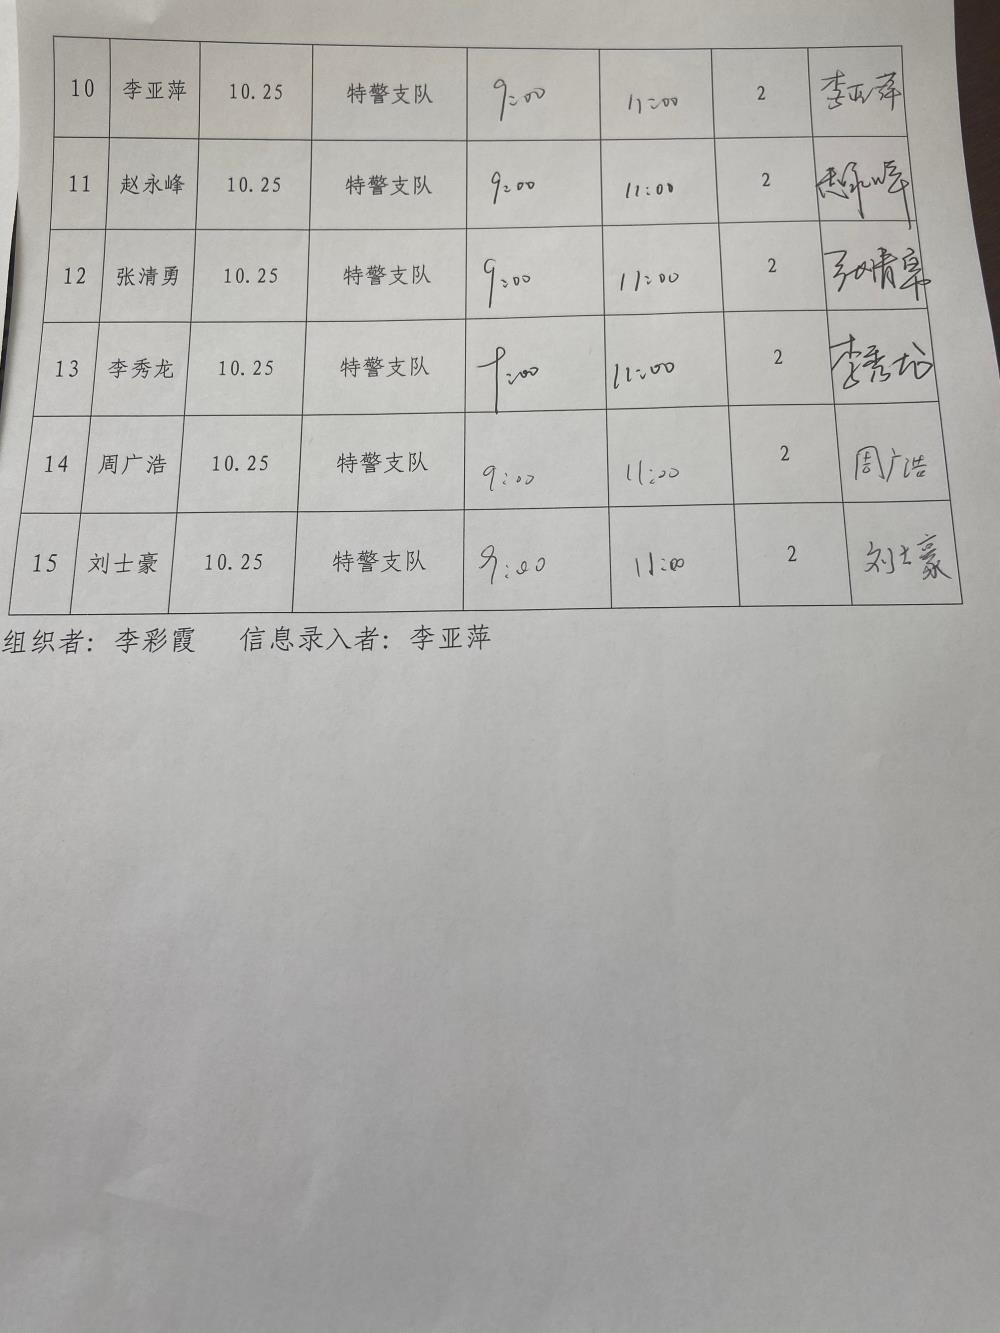 10 李亚萍 10.25 特警支队 9:00 11:00 2 李亚萍
11 赵永峰 10.25 特警支队 9:00 11:00 2 赵永峰
12 张清勇 10.25 特警支队 9:00 11:00 2
13 李秀龙 10.25 特警支队 9:00 11:00 2 李秀龙
14 周广浩 10.25 特警支队 9:00 11:00 2 周广浩
15 刘士豪 10.25 特警支队 9:00 11:00 2 刘士豪
组织者：李彩霞 信息录入者：李亚萍